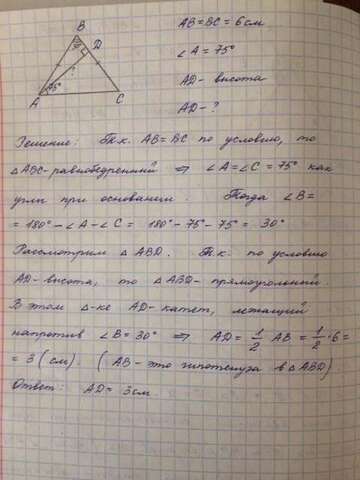 B
30°
D
75°
?
A
C
AB=BC=6см
∠A=75°
AD- высота
AD-?
Решение: Т.к. AB=BC по условию, то
△ABC-равнобедренный ⇒ ∠A=∠C=75° как
углы при основании. Тогда ∠B=
= 180°-∠A-∠C = 180°-75-75°= 30°
Рассмотрим △ABD. Т.к. по условию
AD-высота, то △ABD- прямоугольный.
В этом △-ке AD-катет, лежащий
напротив ∠B=30° ⇒ AD= 1/2 AB = 1/2·6=
= 3(см). (AB- это гипотенуза в △ABD)
Ответ: AD= 3см.